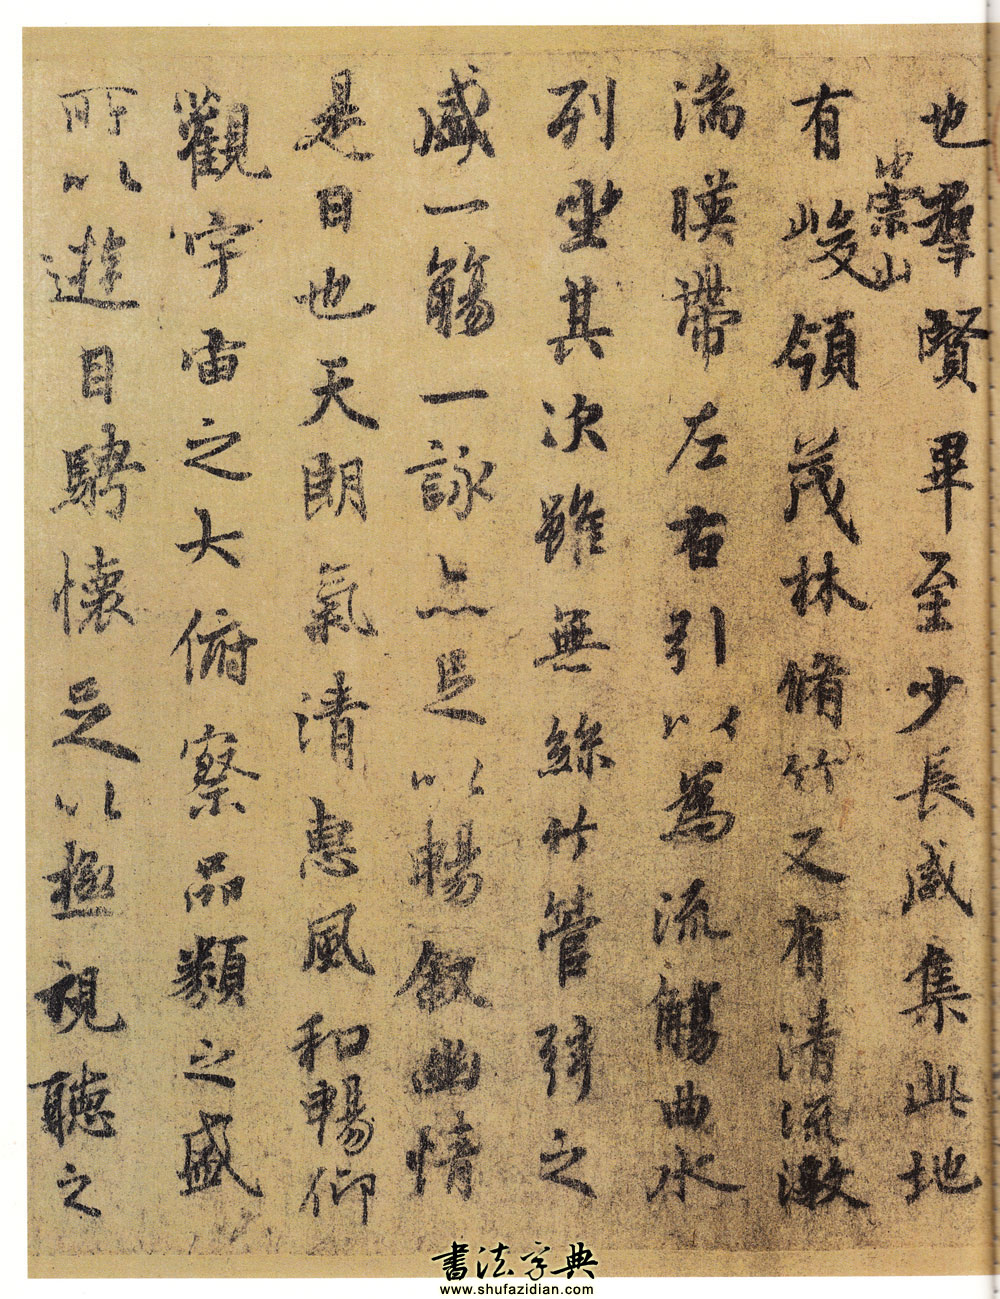 也羣賢畢至少長咸集此地
有崇山峻領茂林脩竹又有清流激
湍暎帶左右引以為流觴曲水
列坐其次雖無絲竹管弦之
盛一觴一詠亦足以暢敘幽情
是日也天朗氣清惠風和暢仰
觀宇宙之大俯察品類之盛
所以遊目騁懷足以極視聽之
書法字典
www.shufazidian.com